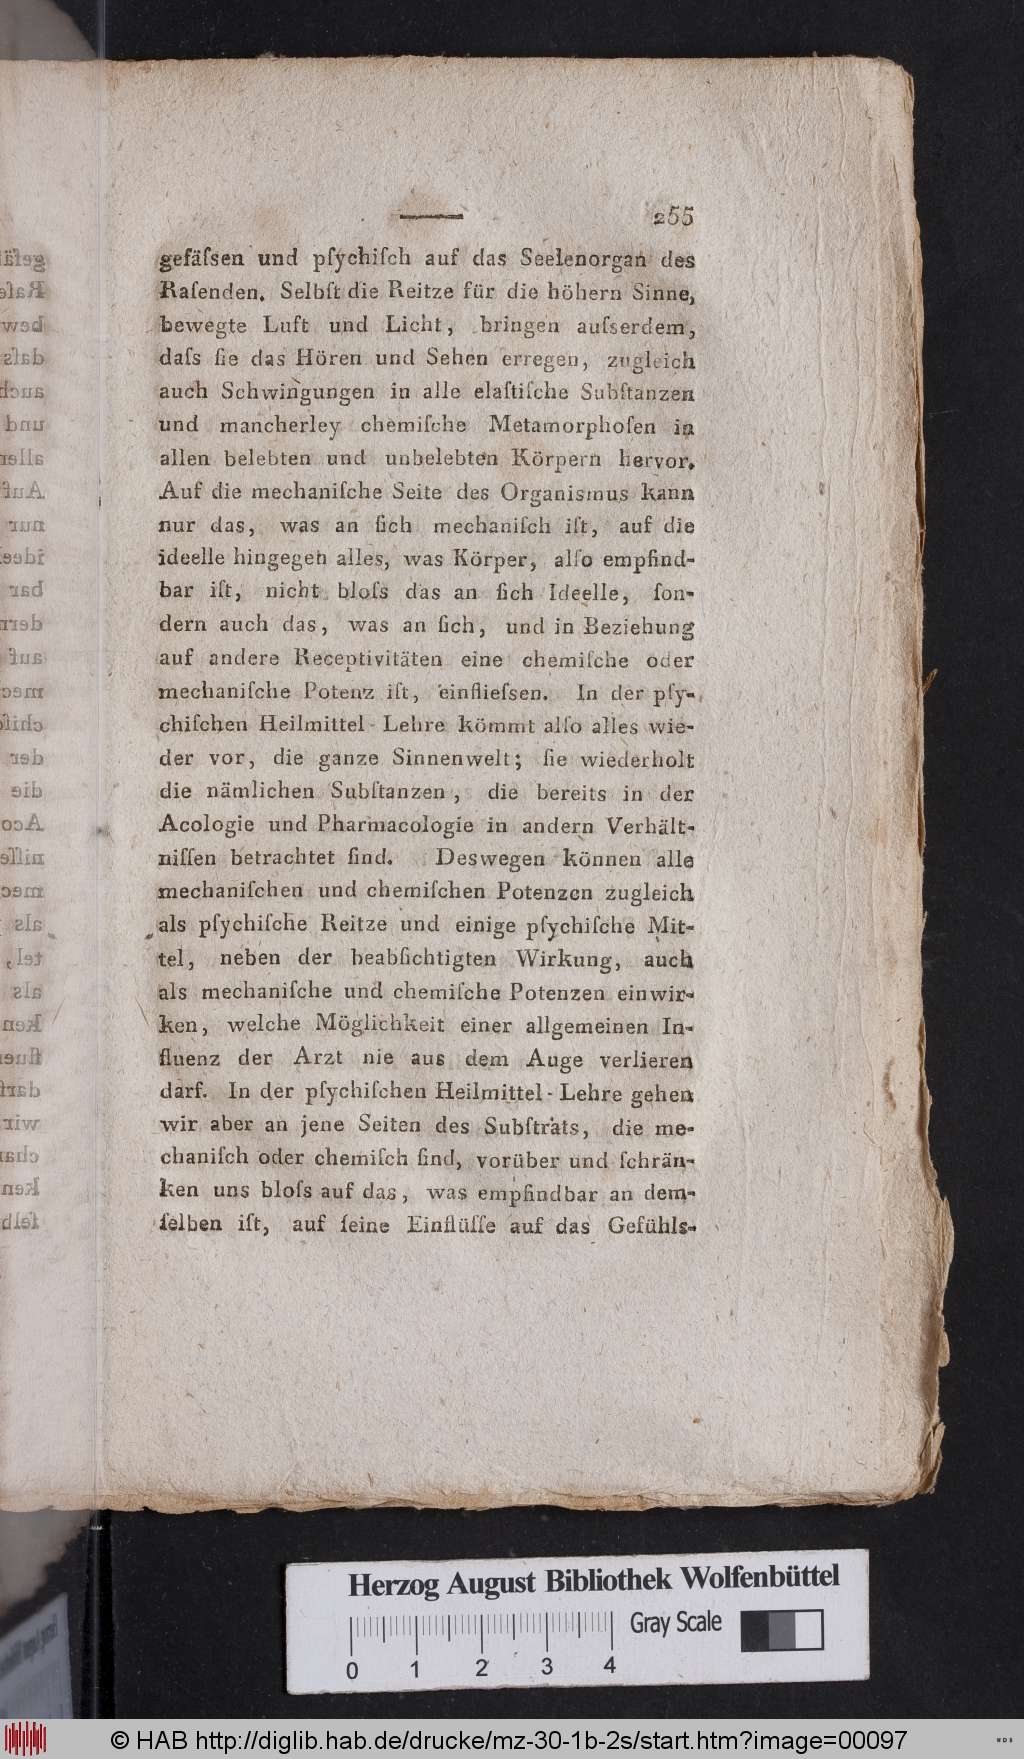 255
gefäſsen und pſychiſch auf das Seelenorgan des
Raſenden. Selbſt die Reitze für die höhern Sinne,
bewegte Luft und Licht, bringen auſserdem,
daſs ſie das Hören und Sehen erregen, zugleich
auch Schwingungen in alle elaſtiſche Subſtanzen
und mancherley chemiſche Metamorphoſen in
allen belebten und unbelebten Körpern hervor.
Auf die mechaniſche Seite des Organismus kann
nur das, was an ſich mechaniſch iſt, auf die
ideelle hingegen alles, was Körper, alſo empfind-
bar iſt, nicht bloſs das an ſich Ideelle, ſon-
dern auch das, was an ſich, und in Beziehung
auf andere Receptivitäten eine chemiſche oder
mechaniſche Potenz iſt, einflieſsen. In der pſy-
chiſchen Heilmittel-Lehre kömmt alſo alles wie-
der vor, die ganze Sinnenwelt; ſie wiederholt
die nämlichen Subſtanzen, die bereits in der
Acologie und Pharmacologie in andern Verhält-
niſſen betrachtet ſind. Deswegen können alle
mechaniſchen und chemiſchen Potenzen zugleich
als pſychiſche Reitze und einige pſychiſche Mit-
tel, neben der beabſichtigten Wirkung, auch
als mechaniſche und chemiſche Potenzen einwir-
ken, welche Möglichkeit einer allgemeinen In-
fluenz der Arzt nie aus dem Auge verlieren
darf. In der pſychiſchen Heilmittel-Lehre gehen
wir aber an jene Seiten des Subſtrats, die me-
chaniſch oder chemiſch ſind, vorüber und ſchrän-
ken uns bloſs auf das, was empfindbar an dem-
ſelben iſt, auf ſeine Einflüſſe auf das Gefühls-
Herzog August Bibliothek Wolfenbüttel
Gray Scale
0 1 2 3 4
© HAB http://diglib.hab.de/drucke/mz-30-1b-2s/start.htm?image=00097